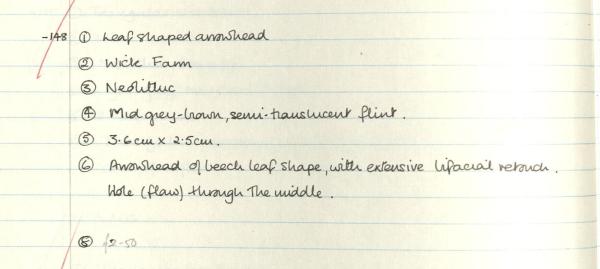 -148 ① Leaf shaped arrowhead
② Wick Farm
③ Neolithic
④ Mid grey-brown, semi-translucent flint.
⑤ 3.6cm x 2.5cm.
⑥ Arrowhead of beech leaf shape, with extensive bifacial retouch.
Hole (flaw) through the middle.
⑧ £2-50